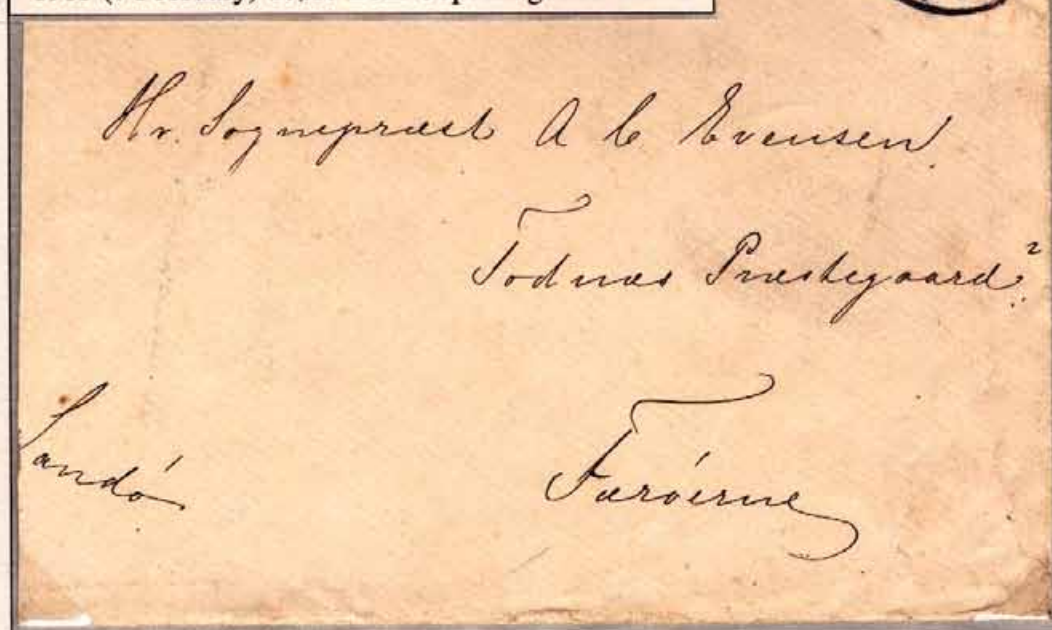 Hr. Sognepræst A C Evensen
Todnæs Præstegaard
Sandö
Færöerne